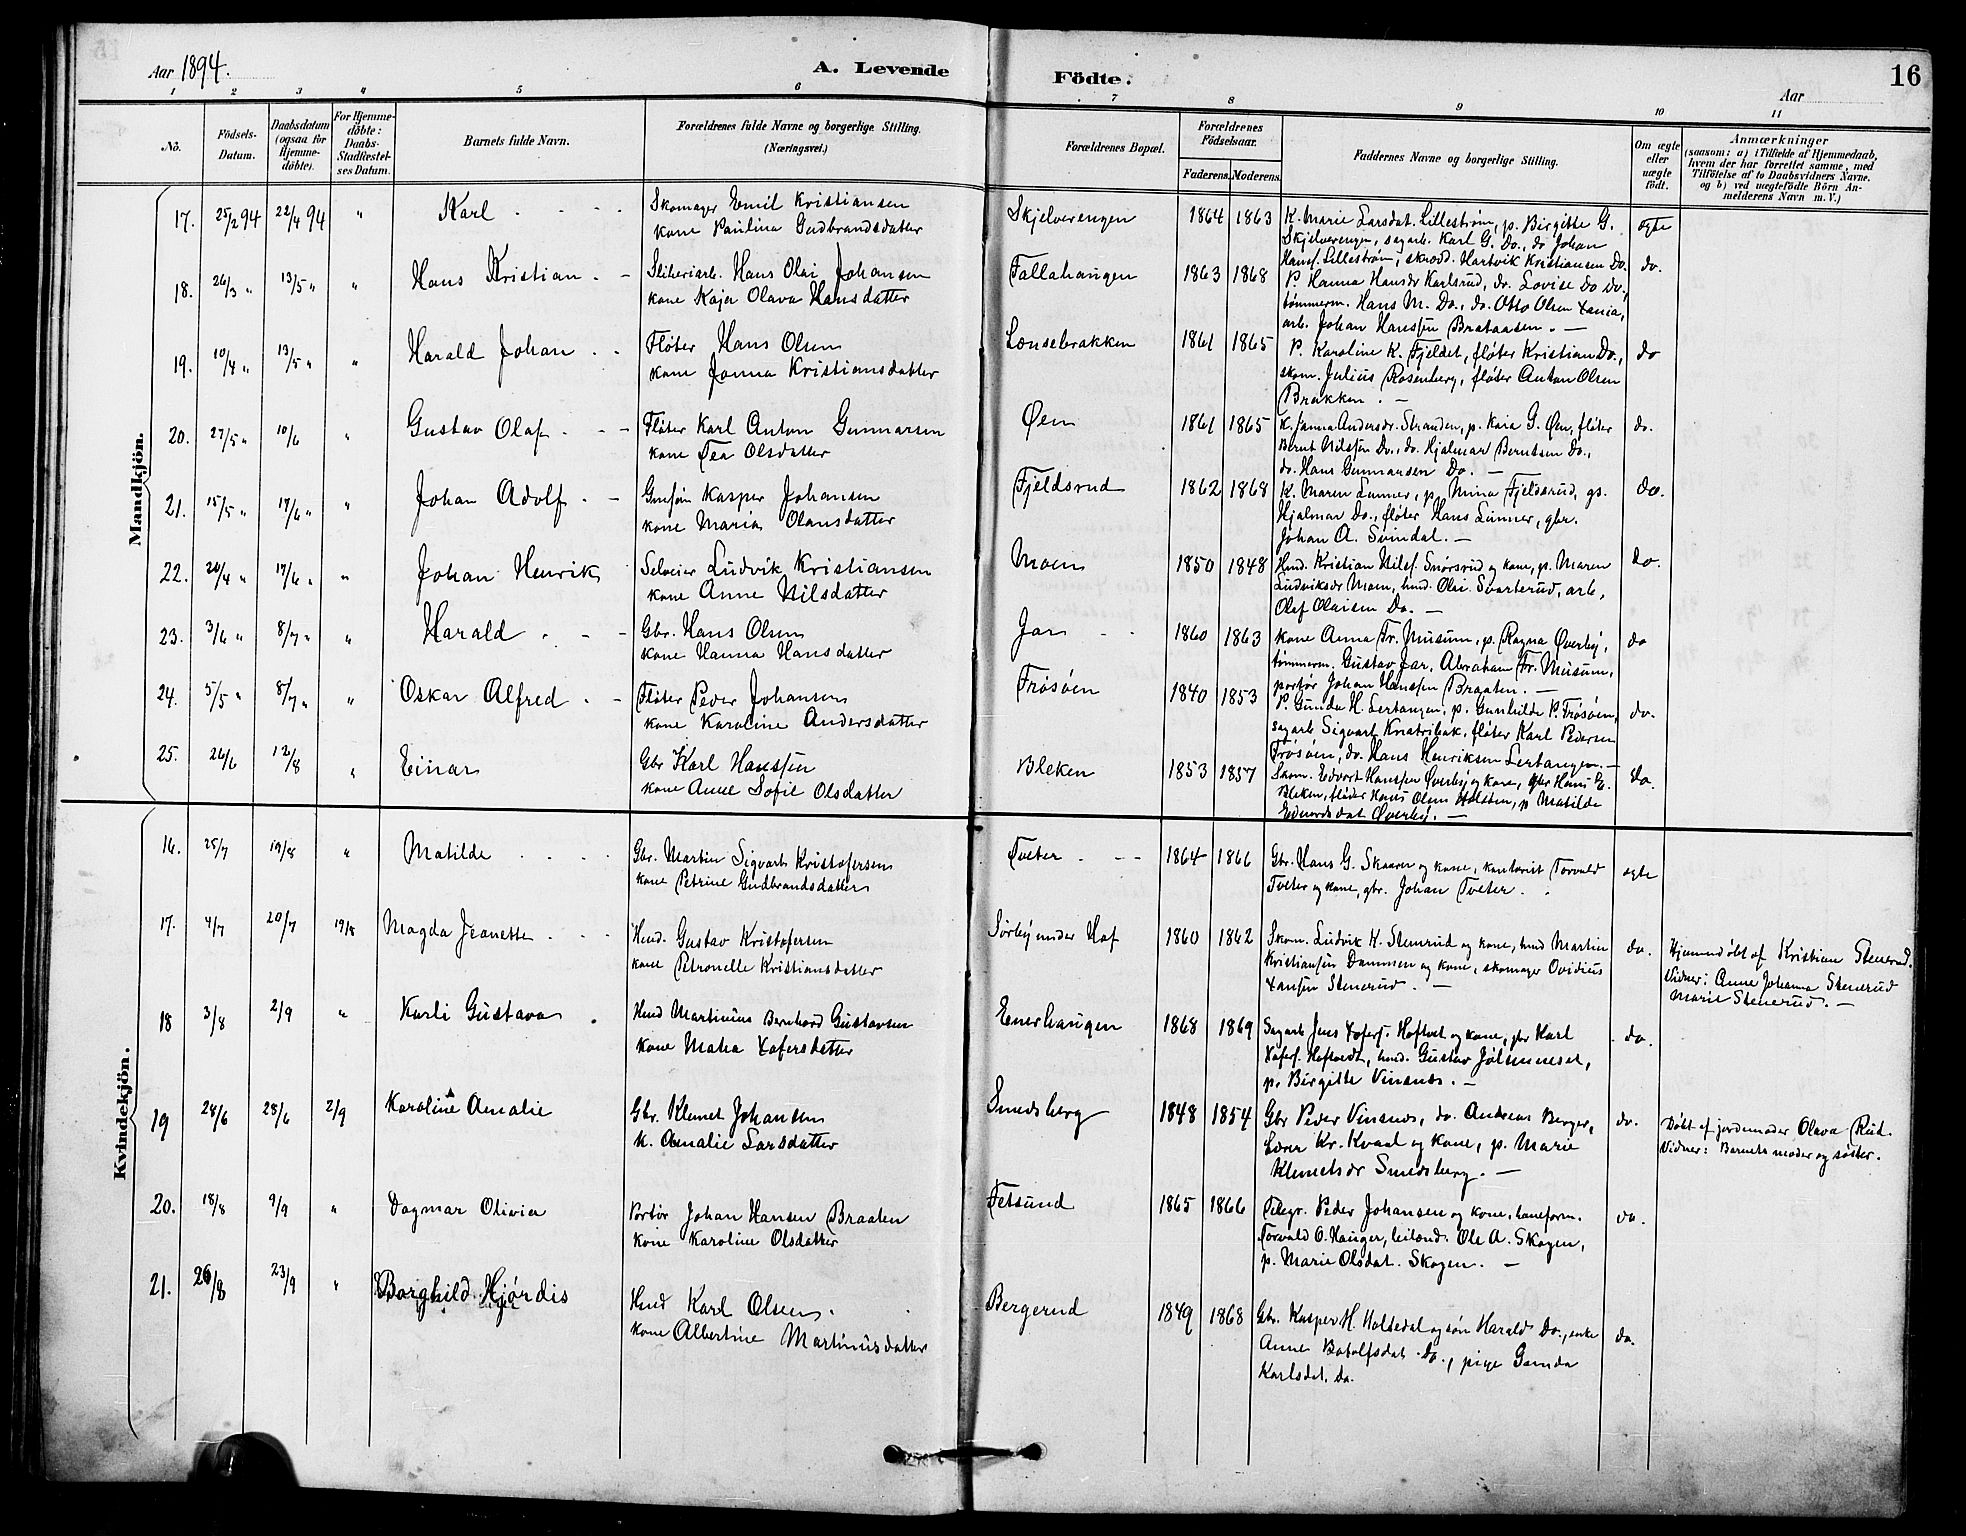 Aar 1894.
A. Levende Födte.
16
Aar
1 2 3 4 5 6 7 8 9 10 11
Nö.
Födsels-Datum.
Daabsdatum (ogsaa for Hjemme-döbte).
For Hjemme-döbte: Daabs-Stadfæstel-ses Datum.
Barnets fulde Navn.
Forældrenes fulde Navne og borgerlige Stilling.
(Næringsvei.)
Forældrenes Bopæl.
Forældrenes Födselsaar.
Faderens. Moderens.
Faddernes Navne og borgerlige Stilling.
Om ægte eller uægte födt.
Anmærkninger
(saasom: a) i Tilfælde af Hjemmedaab, hvem der har forrettet samme, med Tilföielse af to Daabsvidners Navne. og b) ved uægtefödte Börn An-melderens Navn m. V.)
Mandkjön.
17. 25/2 94 22/4 94 " Karl
Skomager Emil Kristiansen
kone Paulina Gudbrandsdatter
Skjelverengen 1864 1863
K. Marie Larsdat. Lillestrøm, p. Birgitte G.
Skjelverengen, sagarb. Karl G. Do., do Johan
Hansf. Lillestrøm, skrædd. Hartvik Kristiansen Do.
ægte
18. 26/3 " 13/5 " " Hans Kristian
Sliberiarb. Hans Olai Johansen
kone Kaja Olava Hansdatter
Fallahaugen 1863 1868
P. Hanna Hansdr Karlsrud, do. Lovise Do Do,
tømmerm. Hans M. Do., do. Otto Olsen Xania,
arb. Johan Hanssen Brataasen. —
do.
19. 10/4 " 13/5 " " Harald Johan
Fløter Hans Olsen
kone Janna Kristiansdatter
Lænsebrakken 1861 1865
P. Karoline K. Fjeldet, fløter Kristian Do.,
skom. Julius Rosenberg, fløter Anton Olsen
Brakken. —
do
20. 27/5 " 10/6 " Gustav Olaf
Fløter Karl Anton Gunnarsen
kone Tea Olsdatter
Øen 1861 1865
K. Janna Andersdr. Stranden, p. Kaia G. Øen, fløter
Bernt Nilssen Do., do. Hjalmar Berntsen Do.,
do. Hans Gunnarsen Do. —
do.
21. 15/5 " 17/6 " " Johan Adolf
Kasper Johansen
kone Maria Olausdatter
Fjeldsrud 1862 1868
K. Maren Lunner, p. Mina Fjeldsrud, gs.
Hjalmar Do., fløter Hans Lunner, gbr.
Johan A. Svindal. —
do.
22. 20/4 " 17/6 " " Johan Henrik
Selveier Ludvik Kristiansen
kone Anne Nilsdatter
Moen 1850 1848
Hmd. Kristian Nilsf. Snørsrud og kone, p. Maren
Ludviksdr Moen, hmd. Olai Svarterud, arb,
Olaf Olaisen Do. —
do.
23. 3/6 " 8/7 " " Harald
Gbr. Hans Olsen
kone Hanna Hansdatter
Jar 1860 1863
kone Anna Fr. Musum, p. Ragna Øverby,
tømmerm. Gustav Jar, Abraham Fr. Musum,
portør Johan Hanssen Braaten. —
do
24. 5/5 " 8/7 " " Oskar Alfred
Fløter Peder Johansen
kone Karoline Andersdatter
Frøsøen 1840 1853
P. Gunda H. Lertangen, p. Gunhilde P. Frøsøen,
sagarb Sigvart Knatribak, fløter Karl Pedersen
Frøsøen, do. Hans Henriksen Lertangen. —
do.
25. 26/6 12/8 " Einar
Gbr Karl Hanssen
kone Anne Sofie Olsdatter
Bleken 1853 1857
Skom. Edvart Hanssen Øverby og kone, gbr Hans G.
Bleken, fløder Hans Olsen Holsten, p Matilde
Edvardsdat Øverby. —
do.
Kvindekjön.
16. 25/7 19/8 " Matilde
Gbr. Martin Sigvart Kristofersen
kone Petrine Gudbrandsdatter
Tveter 1864 1866
Gbr. Hans G. Skaarer og kone, kontorist Torvald
Tveter og kone, gbr. Johan Tveter.
ægte
17. 4/7 20/7 19/8 Magda Jeanette
Hmd. Gustav Kristofersen
kone Petronelle Kristiansdatter
Sørby under Hof 1860 1862
Skom. Ludvik K. Stenrud og kone, hmd Martin
Kristiansen Dammen og kone, skomager Ovidius
Xansen Stenerud. —
do.
Hjemmedøbt af Kristian Stenerud.
Vidner: Anne Johanna Stenerud
Marie Stenerud. —
18 3/8 2/9 " Karli Gustava
Hmd Martinius Bernhard Gustavsen
kone Matea Xofersdatter
Enerhaugen 1868 1869
Sagarb Jens Xofers. Hoftvet og kone, gbr Karl
Xofers. Hoftvedt, hmd. Gustav Jølsenneset,
p. Birgitte Vinsnes. —
do.
19 28/6 28/6 2/9 Karoline Amalie
Gbr. Klemet Johansen
k. Amalie Larsdatter
Smedsberg 1848 1854
Gbr Peder Vinsnes, do. Andreas Berger,
Lærer Kr. Kvaal og kone, p. Marie
Klemetsdr Smedsberg. —
do.
Døbt af jordemoder Olava Rud.
Vidner: Barnets moder og søster.
20. 18/8 9/9 " Dagmar Olivia
Portør Johan Hansen Braaten
kone Karoline Olsdatter
Fetsund 1865 1866
Telegr. Peder Johansen og kone, baneform.
Torvald O. Hauger, leilend. Ole A. Skogen,
p. Marie Olsdat. Skogen. —
do.
21. 26/8 23/9 " Borghild Hjørdis
Hmd Karl Olsen.
kone Albertine Martinusdatter
Bergerud 1849 1868
Gbr. Kasper H. Holtedal og søn Harald Do., enke
Anne Botolfsdat. Do., pige Gunda
Karlsdat. Do.
do.